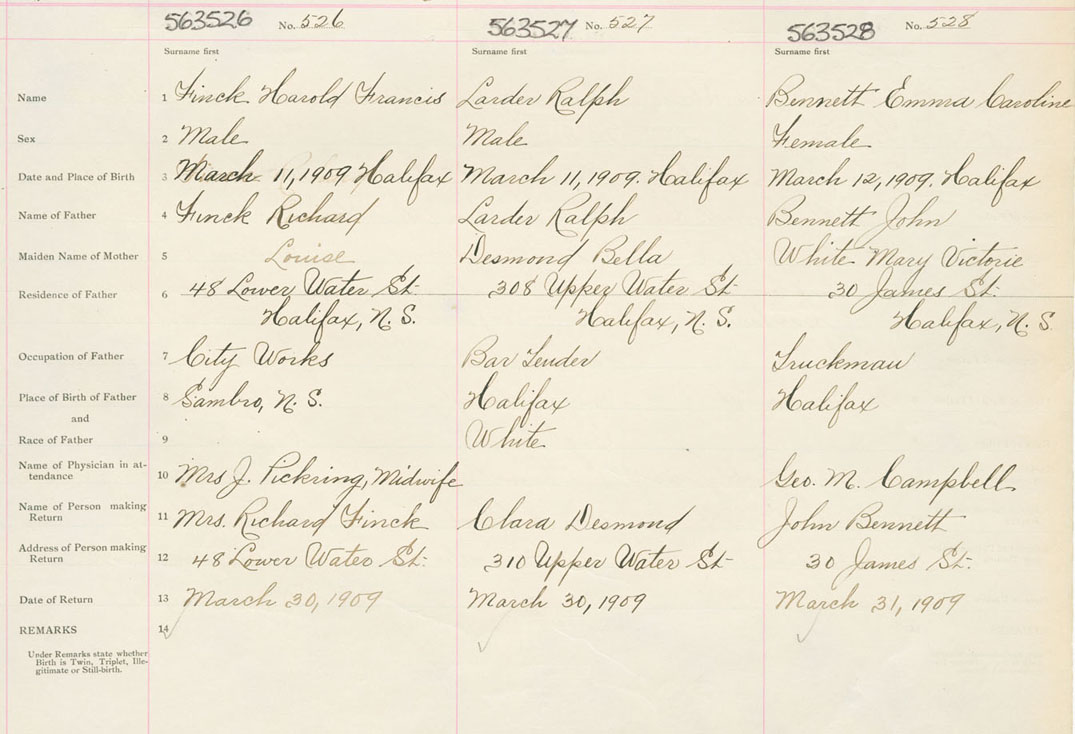 563526 No. 526 563527 No. 527 563528 No. 528
Surname first Surname first Surname first
Name 1 Finck Harold Francis Larder Ralph Bennett Emma Caroline
Sex 2 Male Male Female
Date and Place of Birth 3 March 11, 1909 Halifax March 11, 1909. Halifax March 12, 1909. Halifax
Name of Father 4 Finck Richard Larder Ralph Bennett John
Maiden Name of Mother 5 Louise Desmond Bella White Mary Victorie
Residence of Father 6 48 Lower Water St. 308 Upper Water St 30 James St.
Halifax, N. S. Halifax, N. S. Halifax, N. S
Occupation of Father 7 City Works Bar Tender Truckman
Place of Birth of Father 8 Sambro, N. S. Halifax Halifax
and
Race of Father 9 White
Name of Physician in at-
tendance 10 Mrs J. Pickring, Midwife Geo. M. Campbell
Name of Person making
Return 11 Mrs. Richard Finck Clara Desmond John Bennett
Address of Person making
Return 12 48 Lower Water St. 310 Upper Water St 30 James St.
Date of Return 13 March 30, 1909 March 30, 1909 March 31, 1909
REMARKS 14
Under Remarks state whether
Birth is Twin, Triplet, Ille-
gitimate or Still-birth.